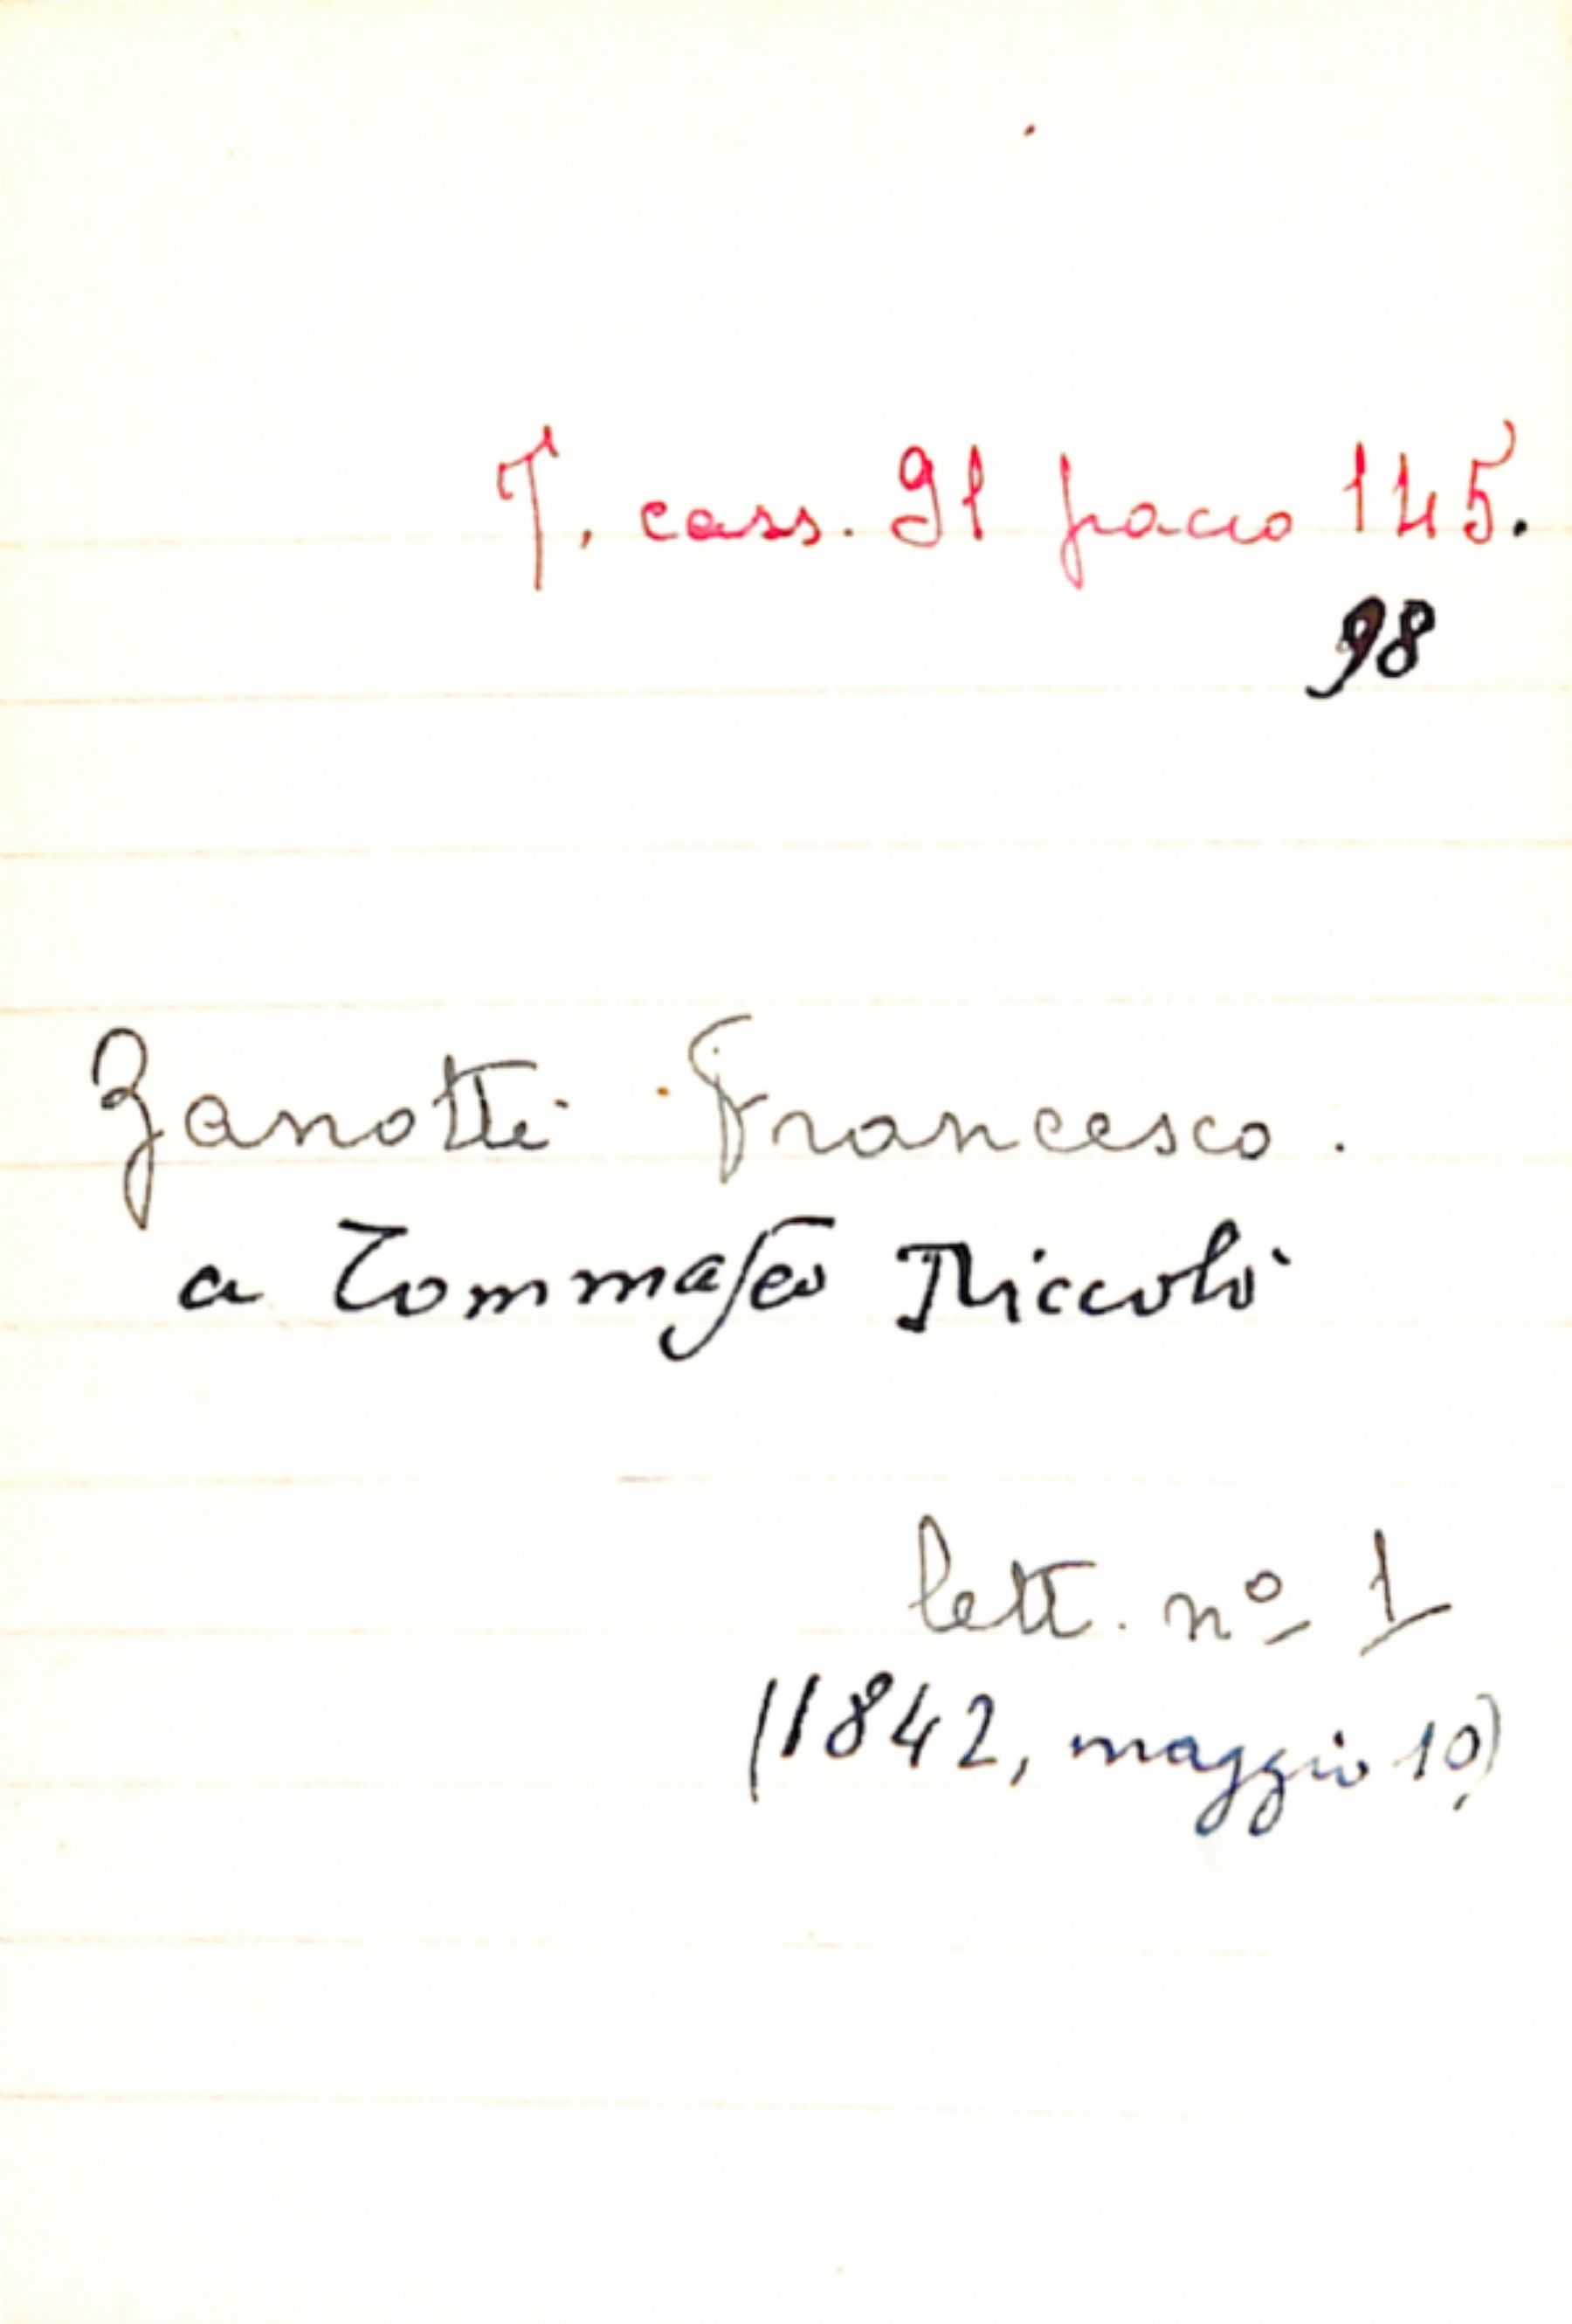 T. cass. 91 pacco 145.
98
Zanotti Francesco.
a Tommaseo Niccolò
lett. nº 1
(1842, maggio 10)